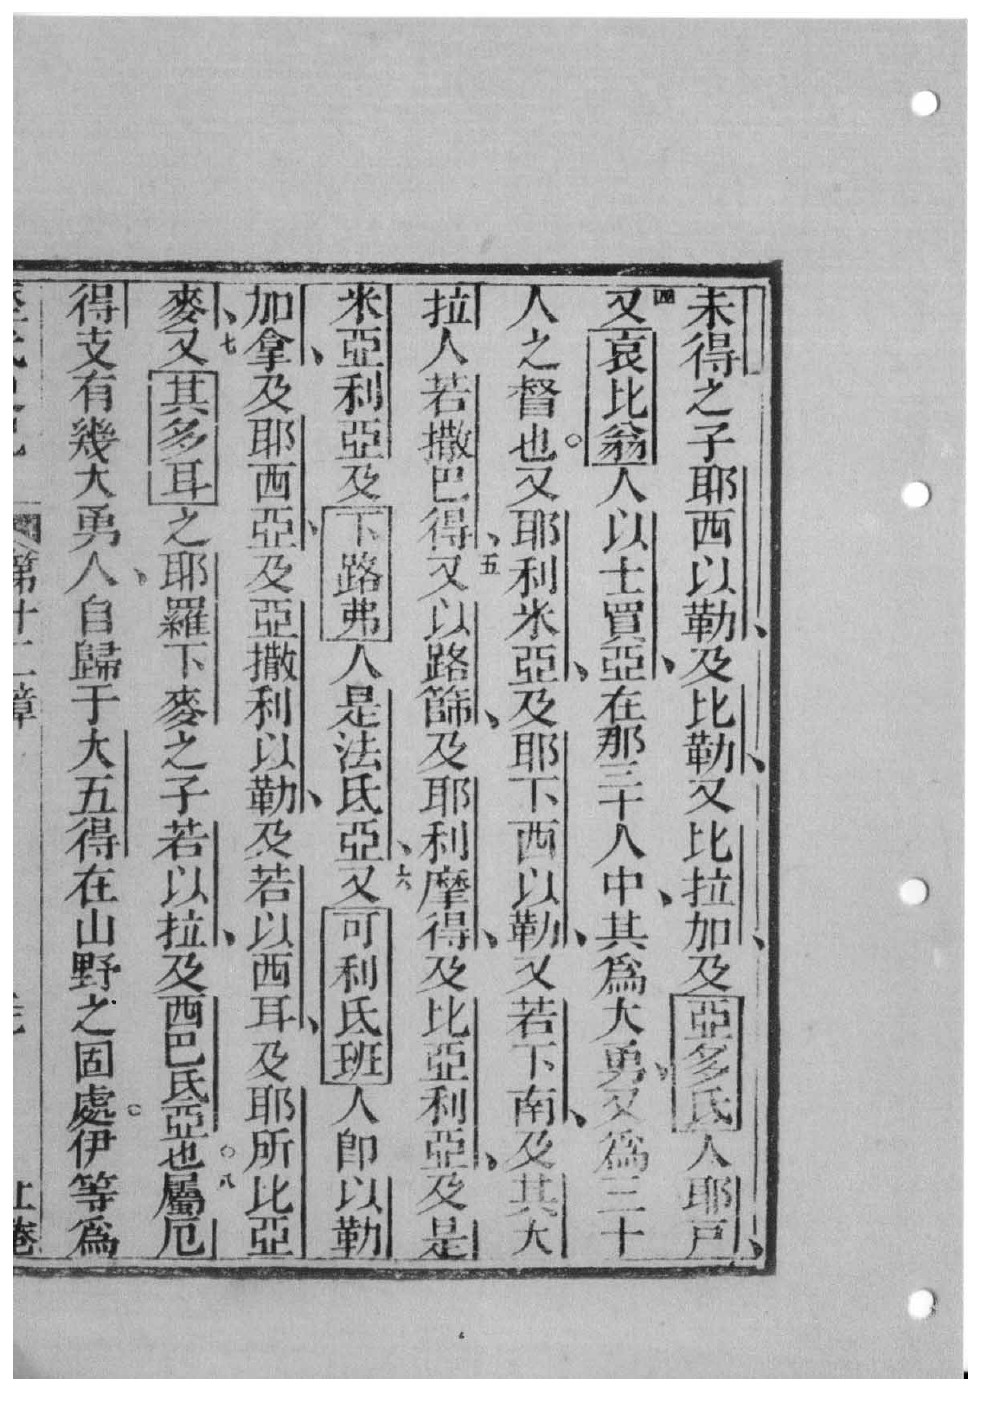 未得之子耶西以勒及比勒又比拉加及亞多氐人耶戸
四又哀比翁人以士買亞在那三十人中其爲大勇又爲三十
人之督也○又耶利米亞及耶下西以勒又若下南及其大
拉人若撒巴得五又以路篩及耶利摩得及比亞利亞及是
米亞利亞及下路弗人是法氐亞六又可利氐班人卽以勒
加拿及耶西亞及亞撒利以勒及若以西耳及耶所比亞
麥七又其多耳之耶羅下麥之子若以拉及西巴氐亞也○八屬厄
得支有幾大勇人自歸于大五得在山野之固處○伊等爲
第十二章